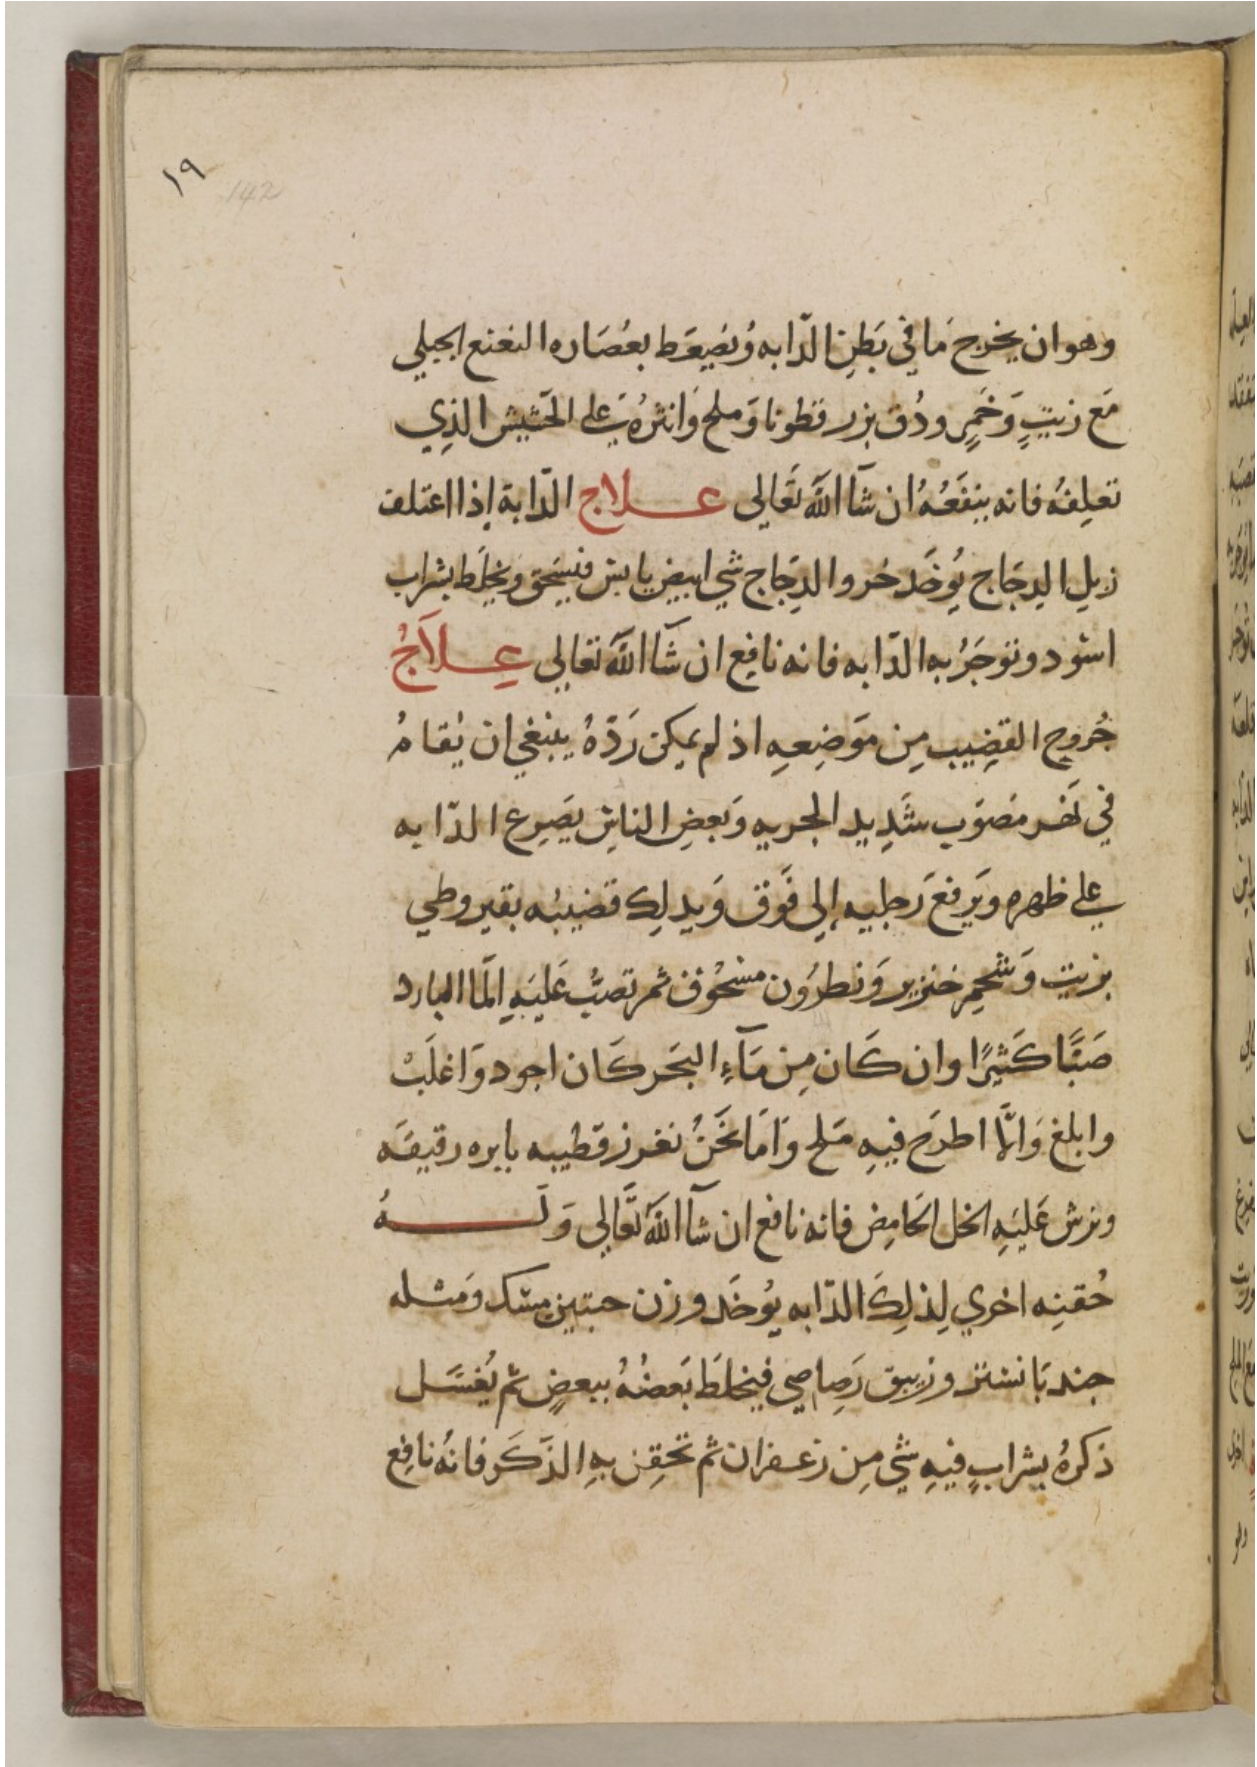 ١٩
142
وهو ان يخرج مَا في بَطنِ الدّابه وُيسَعَط بعُصَاره النعنع الجبلي
مَع زيتٍ وَخَمرٍ ودُق بزر قطونا وَملح وَانثرهُ عَلي الحَشيش الذِي
تعلِفهُ فانه ينفَعُهُ ان شآ اللَّه تَعَالي عـلاج الدّابة إذا اعتلف
زبل الدِجَاج يُوخَد خرو الدِجَاج شي ابيض يابس فيسَحق ويخلَط بشراب
اسَود وتوجَرُ به الدّابه فانه نافِع ان شَآ اللَّه تعَالي عِـلاَجُ
خُروج القضِيب مِن مَوَضِعهِ اذ لم يمكِن رَدّهُ ينبَغي ان يُقامُ
في نَهر مَصَوَب شَدِيد الجريه وَبَعضِ الناسِ يَصَرِع الدّابه
عَلي ظهره ويَرفعَ رَجليه إلي فَوق وَيدلِك قضيبُه بقيروطي
بزيت وَشَحمِ خنزير وَنطرُون مسَحُوق ثم تصبُّ عَليَهِ المآ البارد
صَبَّا كَثيرًا وان كَان مِن مَآءِ البَحَر كَان اجود وَاغلَبْ
وابلغ وَالَّا اطرَح فيهِ مَلح وَامَا نحَنُ نغرز قضيبه بابره رقيقَه
ونرش عَليَهِ الخل الحَامِض فانه نافع ان شآ اللَّه تَعَالي وَلَـهُ
حُقنِه اخري لِذلِكَ الدّابه يُوخَد وزن حبتين مِسَك وَمثله
جند بَانستر وزيبق رَصَاصي فيخلَط بَعضهُ ببعضٍ ثم يُغسَل
ذكرهُ بشرابٍ فيهِ شي مِن زعفران ثم تحقِن بهِ الذَكَر فانهُ نافِع